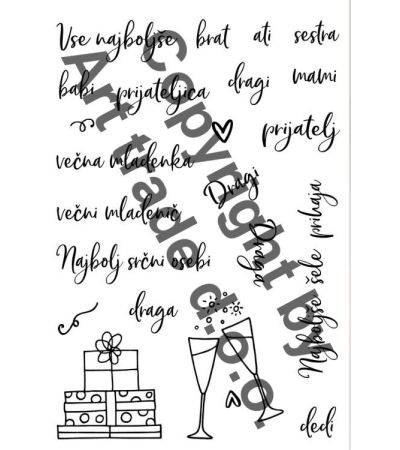 Vse najboljše brat ati sestra
babi prijateljica dragi mami
prijatelj
večna mladenka
Dragi
večni mladenič
Draga
Najbolj srčni osebi
Najboljše šele prihaja
draga
dedi
Copyright by
Art trade d.o.o.